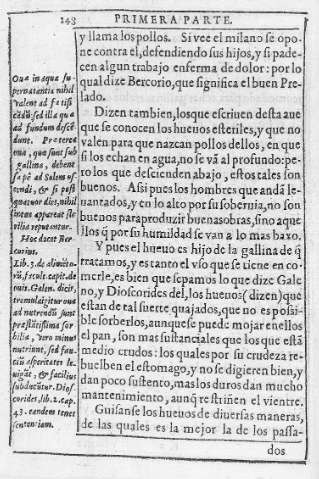 243
PRIMERA PARTE.
y llama los pollos. Si vee el milano se opo-
ne contra el, defendiendo sus hijos, y si pade-
cen algun trabajo enferma de dolor: por lo
qual dize Bercorio, que significa el buen Pre-
lado.
Dizen tambien, los que escriuen desta aue
que se conocen los hueuos esteriles, y que no
valen para que nazcan pollos dellos, en que
si los echan en agua, no se vã al profundo: pe-
ro los que descienden abajo, estos tales son
buenos. Assi pues los hombres que andã le-
uantados, y en lo alto por su soberuia, no son
buenos para produzir buenas obras, sino aque
llos q̃ por su humildad se van a lo mas baxo.
Y pues el hueuo es hijo de la gallina de q̃
tratamos, y es tanto el vso que se tiene en co-
merle, es bien que sepamos lo que dize Gale
no, y Dioscorides del, los hueuos (dizen) que
estan de tal suerte quajados, que no es possi-
ble sorberlos, aunque se puede mojar en ellos
el pan, son mas sustanciales que los que estã
medio crudos: los quales por su crudeza re-
buelben el estomago, y no se digieren bien, y
dan poco sustento, mas los duros dan mucho
mantenimiento, aunq̃ restriñen el vientre.
Guisanse los hueuos de diuersas maneras,
de las quales es la mejor la de los passa-
dos
Oua in aqua su-
pernatantia nihil
valent ad fœtifi
cãdũ: sed illa qua
ad fundum descẽ
dunt. Præterea
ea, quæ sunt sub
gallina, debent
sæpè ad Solem os
tendi, & si post
quatuor dies, nihil
intus appareat ste
rilia reputantur.
Hoc docet Ber
corius.
Lib. 3. de alimẽto-
rũ, facult. capit. de
ouis. Galen. dicit,
tremula igitur oua
ad nutriendũ sunt
præstãtissima sor
bilia, vero minus
nutriunt, sed fau-
ciũ asperitates le
uigãt, & facilius
subducũtur. Dios
corides, lib. 2. cap.
43. eandem tenet
sententiam.